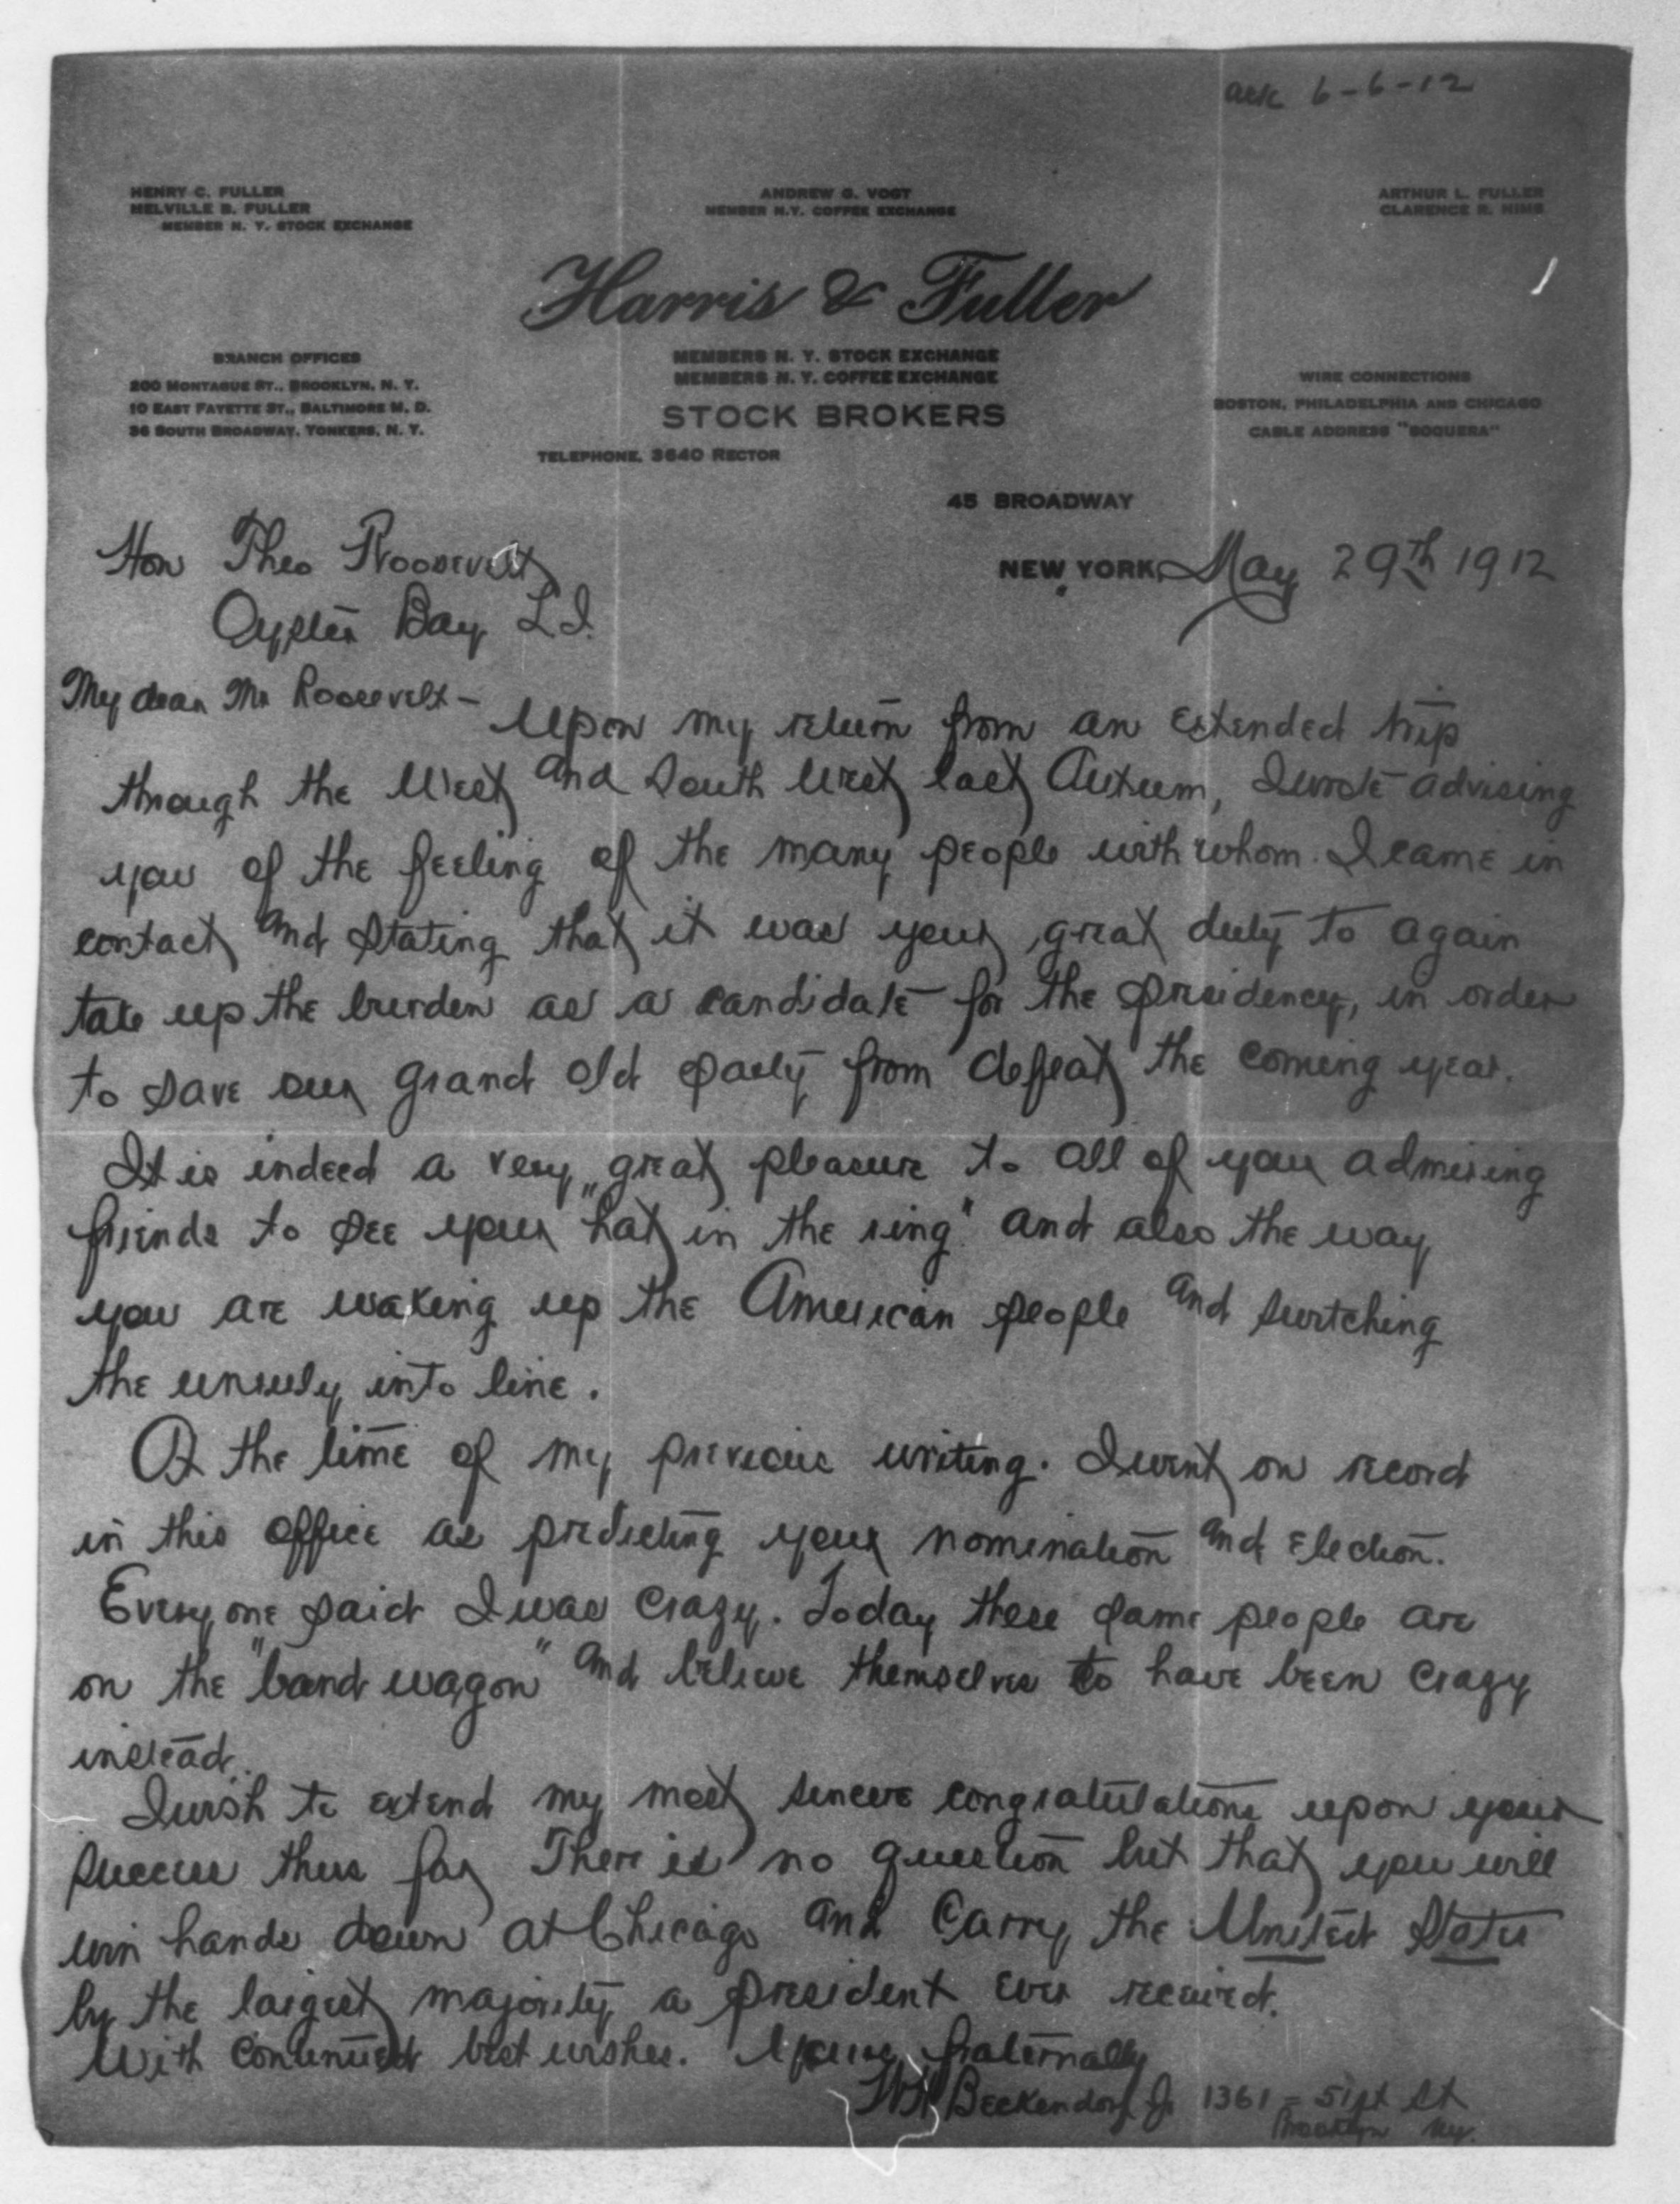 ack 6-6-12
HENRY C. FULLER
MELVILLE B. FULLER
MEMBER N. Y. STOCK EXCHANGE
ANDREW G. VOGT
MEMBER N.Y. COFFEE EXCHANGE
ARTHUR L. FULLER
CLARENCE R. NIMS
Harris & Fuller
BRANCH OFFICES
200 MONTAGUE ST., BROOKLYN, N. Y.
10 EAST FAYETTE ST., BALTIMORE M. D.
36 SOUTH BROADWAY, YONKERS, N. Y.
MEMBERS N. Y. STOCK EXCHANGE
MEMBERS N. Y. COFFEE EXCHANGE
STOCK BROKERS
TELEPHONE, 3640 RECTOR
WIRE CONNECTIONS
BOSTON, PHILADELPHIA AND CHICAGO
CABLE ADDRESS "BOQUERA"
45 BROADWAY
NEW YORK, May 29th 1912
Hon Theo Roosevelt
Oyster Bay L.I.
My dear Mr Roosevelt—
Upon my return from an extended trip
through the West and South West last Autum, I wrote advising
you of the feeling of the many people with whom I came in
contact and stating that it was your great duty to again
take up the burden as a candidate for the presidency, in order
to save our grand old party from defeat the coming year.
It is indeed a very great pleasure to all of your admiring
friends to see your "hat in the ring" and also the way
you are waking up the American people and switching
the unruly into line.
At the time of my previous writing. I went on record
in this office as predicting your nomination and election.
Everyone said I was crazy. Today these same people are
on the "band wagon" and believe themselves to have been crazy
instead.
I wish to extend my most sincere congratulations upon your
success thus far There is no question but that you will
win hands down at Chicago and carry the United States
by the largest majority a president ever received.
With continued best wishes. Yours fraternally
WH Beckendorf Jr 1361 - 51st St
Brooklyn NY.